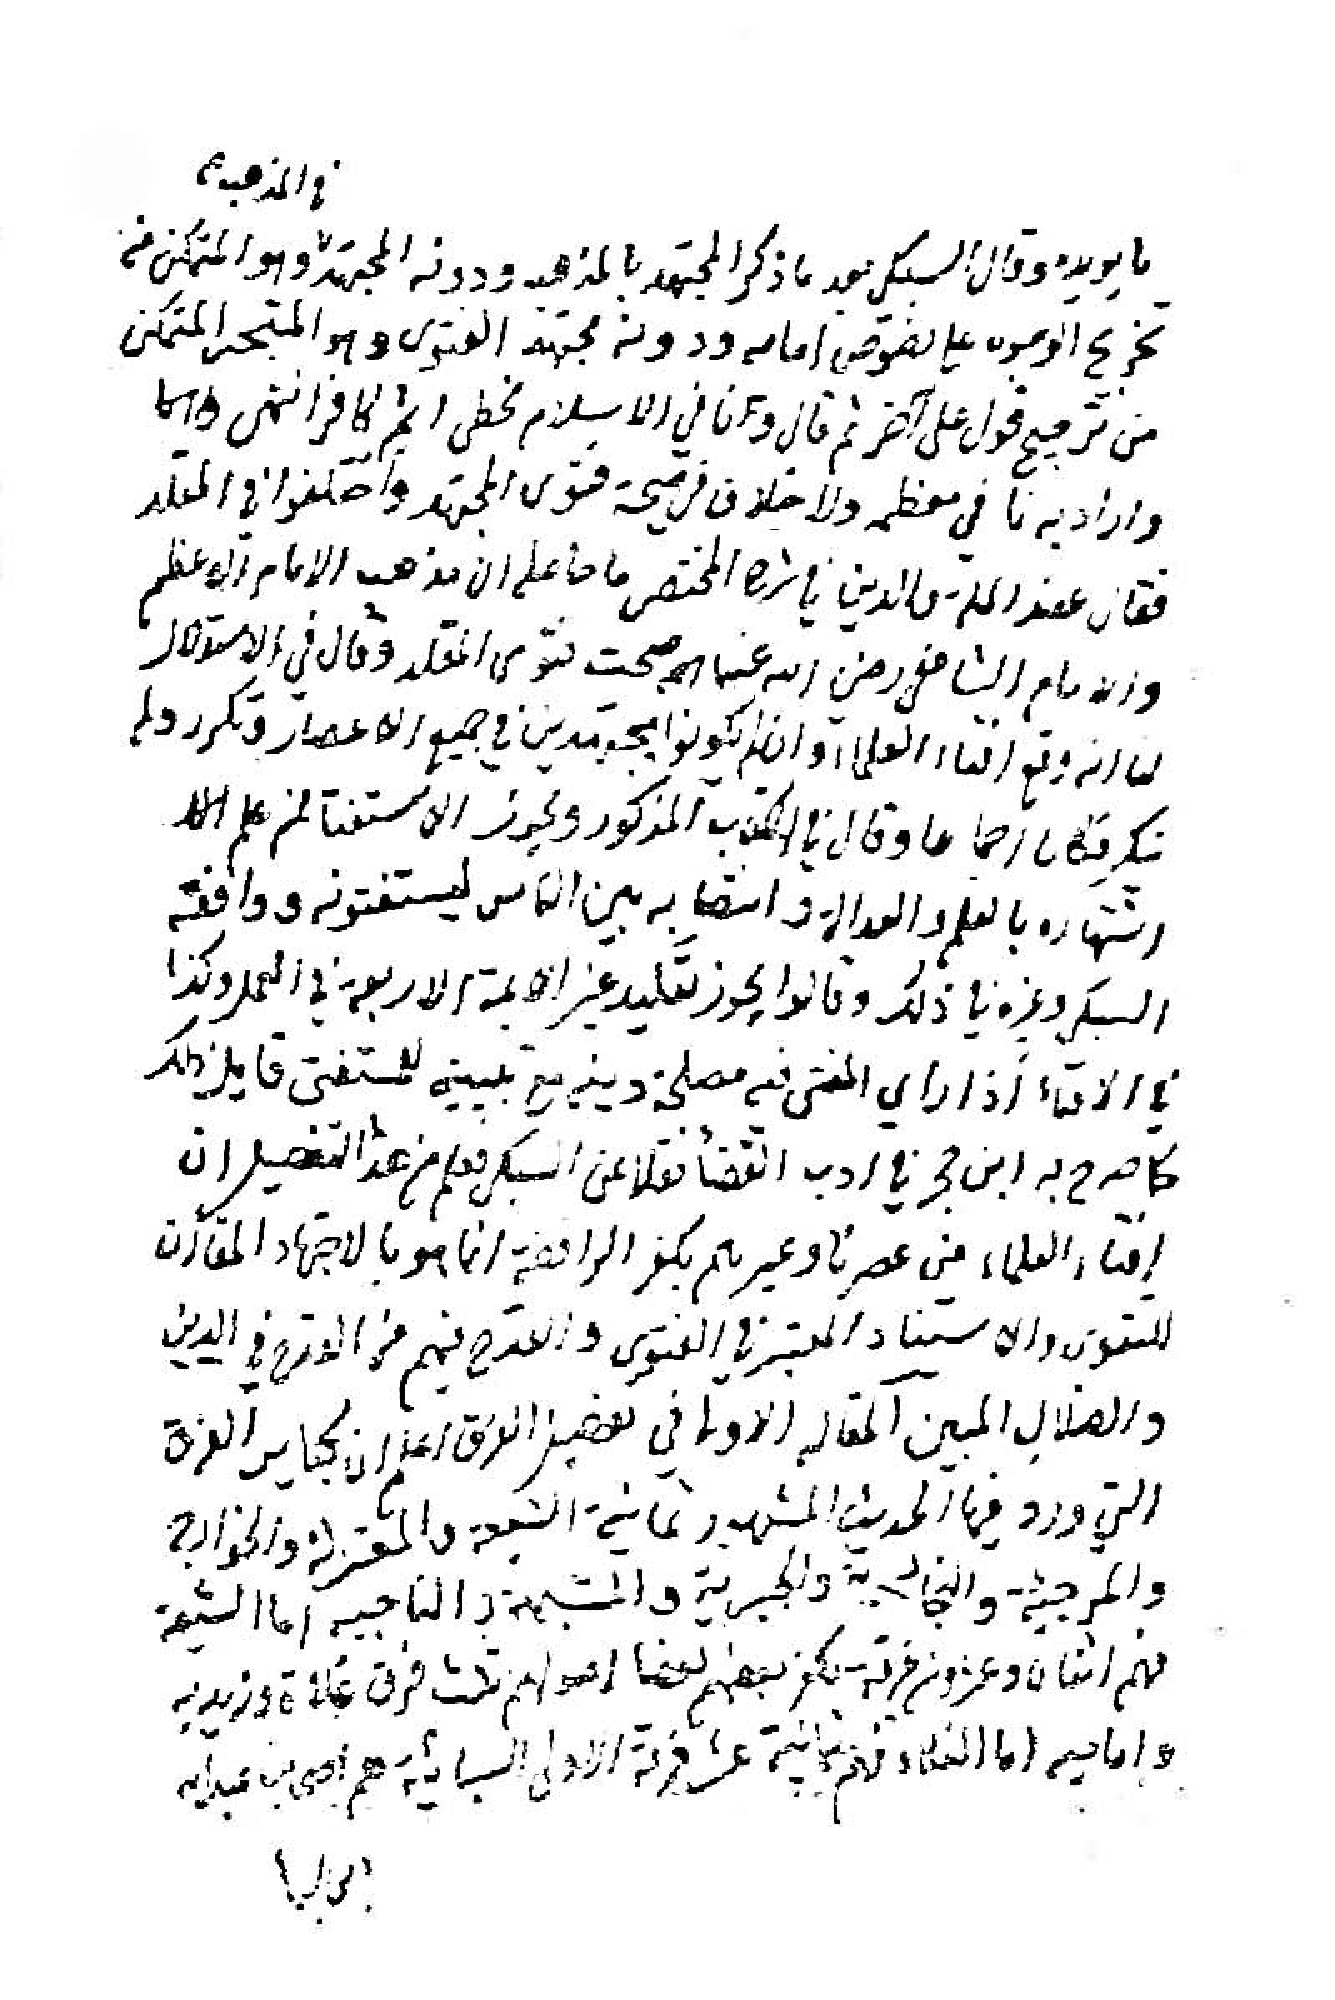 في المذهب
ما يويده وقال السبكي بعد ما ذكر المجتهد بالمذهب ودونه المجتهد وهو المتمكن من
تخريج الوجوه على نصوص امامه ودونه مجتهد الفتوى وهو المتبحر المتمكن
من ترجيح قول على آخر ثم قال ونافي الاسلام مخطي اثم كافر انتهى
واراد به نافي معظمه ولا خلاف في صحة فتوى المجتهد واختلفوا في المقلد
فقال عضد الملة والدين في شرح المختص ما علم ان مذهب الامام الاعظم
والامام الشافعي رضي الله عنهما صحت فتوى المقلد وقال في الاستدلال
لنا انه وقع افتاء العلماء وان لم يكونوا مجتهدين في جميع الاعصار وتكرر ولم
ينكر فكان اجماعا وقال في الكتاب المذكور ويجوز الاستفتا لمن علم
اشتهاره بالعلم والعدالة وانتصابه بين الناس ليستفتونه ووافقه
السبكي وغيره في ذلك وقالوا يجوز تقليد غير الايمة الاربعة في العمل وكذا
في الافتاء اذا راي المفتي فيه مصلحة دينيه مع تبيينه للمستفتي قايل ذلك
كما صرح به ابن حجر في ادب القضا نقلا عن السبكي فعلم من هذا التفصيل ان
افتاء العلماء من عصرنا وغيرهم بكفر الرافضة انما هو بالاجتهاد المقارن
للتقوى والاستناد المعتبر في الفتوى والقدح فيهم من القدح في الدين
والضلال المبين المقاله الاولى في تفصيل الفرق اعلم ان كبار الفرق
التي ورد فيها الحديث المشهور ثمانية الشيعة والمعتزلة والخوارج
والمرجئة والنجارية والجبرية والمشبهة والناجيه اما الشيعة
فهم اثنان وعشرون فرقة يكفر بعضهم بعضا اصولهم ثلث فرق غلاة وزيديه
واماميه اما الغلاة فهم ثمانية عشر فرقة الاولى السبائية هم اصحاب عبد الله